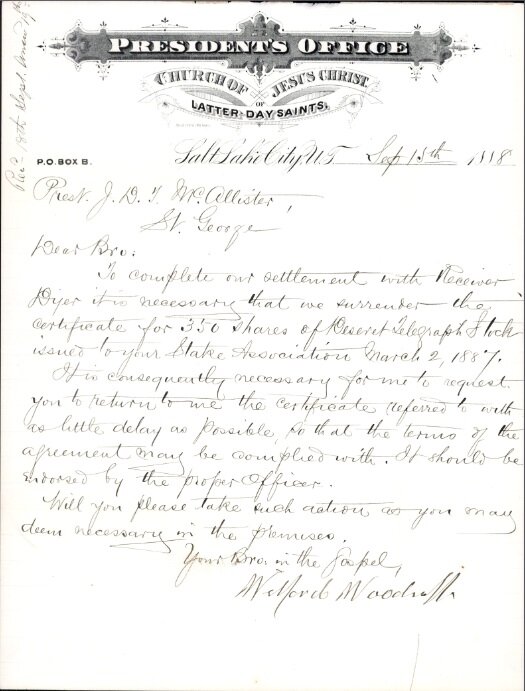 PRESIDENT'S OFFICE
CHURCH OF JESUS CHRIST
OF
LATTER-DAY SAINTS.
P.O. BOX B.
Salt Lake City, U.T. Sep 15th 1888
Rec'd 18th Sept.
Prest. J. D. T. McAllister,
St. George
Dear Bro:
To complete our settlement with Receiver
Dyer it is necessary that we surrender the
certificate for 350 shares of Deseret Telegraph Stock
issued to your Stake Association March 2, 1887.
It is consequently necessary for me to request
you to return to me the certificate referred to with
as little delay as possible, so that the terms of the
agreement may be complied with. It should be
endorsed by the proper Officer.
Will you please take such action as you may
deem necessary in the premises.
Your Bro. in the Gospel,
Wilford Woodruff